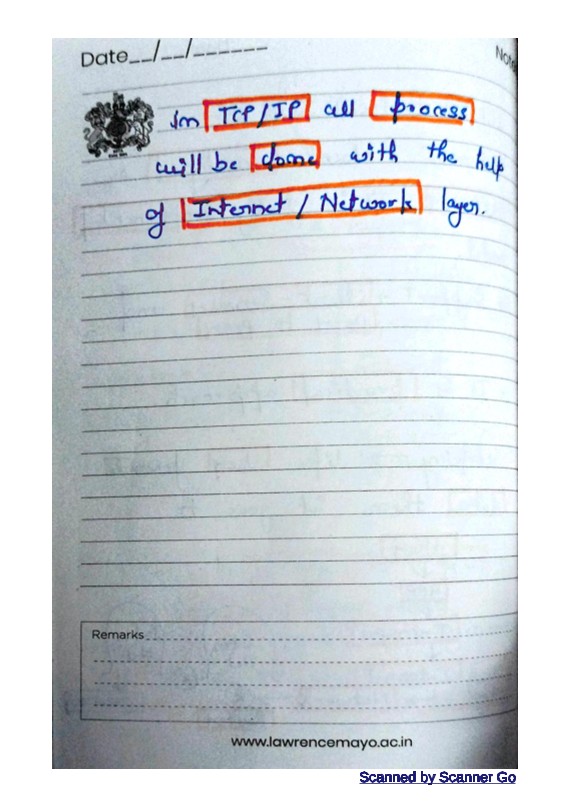 Date__/__/______
Note
In TCP/IP all process
will be done with the help
of Internet / Network layer.
Remarks
www.lawrencemayo.ac.in
Scanned by Scanner Go